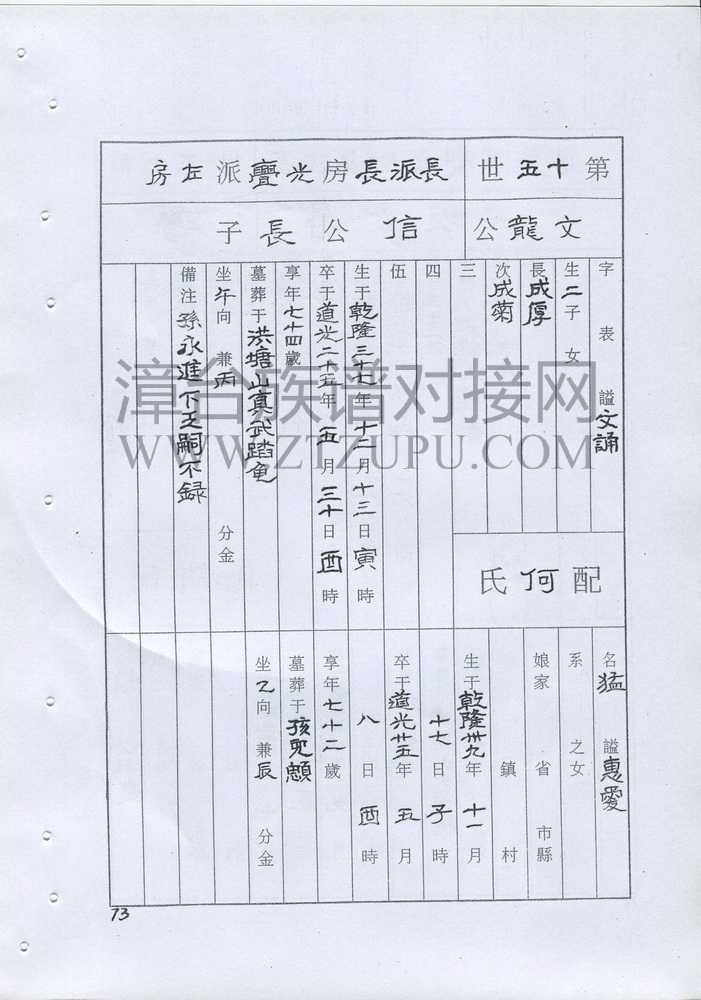 第十五世
長派長房光亹派左房
文龍公
信公長子
字表 諡文誦
生二子 女
長成厚
次成菊
三
四
伍
生于乾隆三十七年十二月十三日寅時
卒于道光二十五年五月三十日酉時
享年七十四歲
墓葬于洪塘山真武踏龟
坐午向 兼丙 分金
備注孫永進下乏嗣不録
配何氏
名猛 諡惠愛
系 之女
娘家 省 市縣
鎮 村
生于乾隆卅九年十一月
十七日子時
卒于道光廿五年五月
八日酉時
享年七十二歲
墓葬于孩児
坐乙向兼辰分金
73
漳台族谱对接网
WWW.ZTZUPU.COM